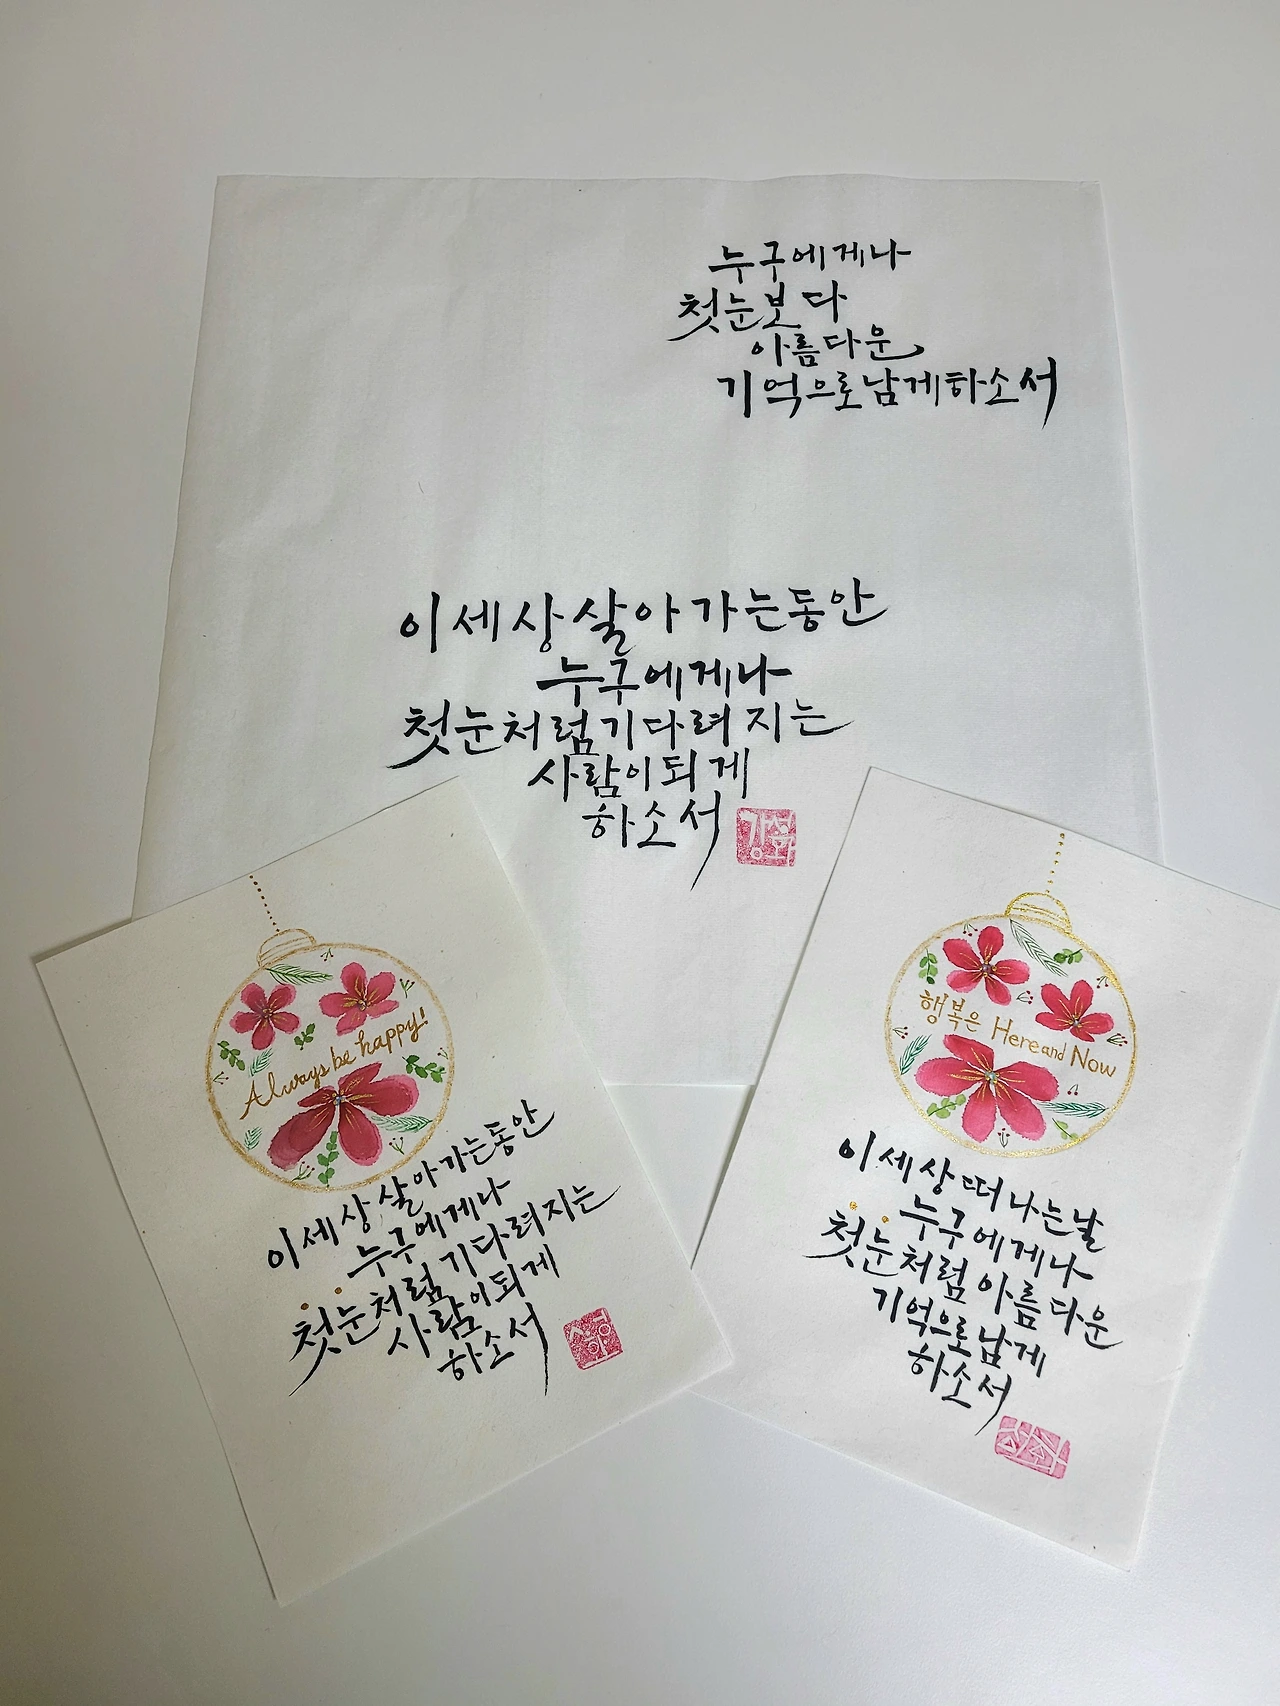 누구에게나
첫눈보다
아름다운
기억으로남게하소서
이세상살아가는동안
누구에게나
첫눈처럼기다려지는
사람이되게
하소서
강성화
Always be happy!
이세상살아가는동안
누구에게나
첫눈처럼기다려지는
사람이되게
하소서
행복은 Here and Now
이세상떠나는날
누구에게나
첫눈처럼아름다운
기억으로남게
하소서